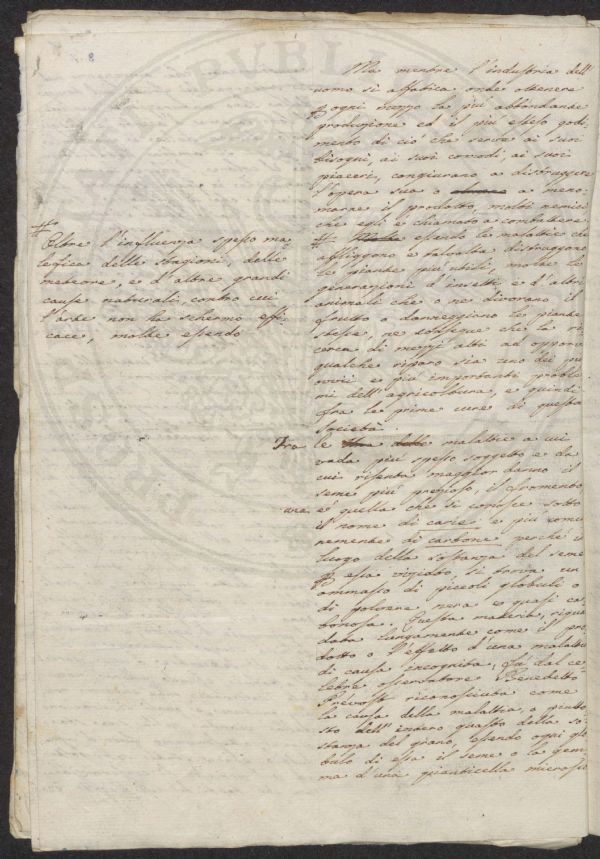 Ma mentre l'industria dell'
uomo si affatica onde ottenere
ogni mezzo la più abbondante
produzione ed il più esteso godi-
mento di ciò che serve ai suoi
bisogni, ai suoi comodi, ai suoi
piaceri, congiurano a distruggere
l'opera sua o a meno-
marne il prodotto, molti nemici
che egli è chiamato a combattere
Molte essendo le malattie che
affliggono e talvolta distruggono
le piante più utili, molte le
generazioni d'insetti e d'altri
animali che o ne divorano il
frutto o danneggiano le piante
stesse, ne consegue che la ri-
cerca di mezzi atti ad opporvi
qualche riparo sia uno dei più
ovvii e più importanti proble-
mi dell'agricoltura, e quindi
fra le prime cure di questa
Società.
Oltre l'influenza spesso ma-
lefica delle stagioni, delle
meteore, e d'altre grandi
cause naturali, contro cui
l'arte non ha schermo effi-
cace, molte essendo
Fra le malattie a cui
vada più spesso soggetto e da
cui risenta maggior danno il
seme più prezioso, il frumento
v'è quella che si conosce sotto
il nome di carie e più comu-
nemente di carbone perchè in
luogo della sostanza del seme
essa viziato si trova un
ammasso di piccoli globuli o
di polvere nera e quasi car-
bonosa. Questa materia, rigua-
data lungamente come il pro-
dotto o l'effetto d'una malattia
di causa incognita, fu dal ce-
lebre osservatore Benedetto
Prévost riconosciuta come
la causa della malattia, o piutto-
sto dell'intero guasto della so-
stanza del grano, essendo ogni glo-
bulo di essa il seme o la gem-
ma d'una pianticella microsco